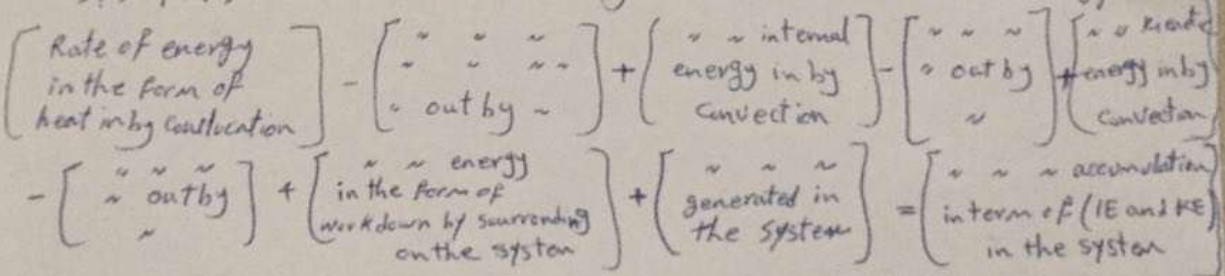 [Rate of energy in the form of heat in by conslucation] - [" " " " " " " " out by "] + [" " internal energy in by convection] - [" " " " out by "] + [" " kinetic energy in by convection]
- [" " " " out by "] + [" " energy in the form of work down by sourronding on the system] + [" " " generated in the system] = [" " " accumulation in term of (IE and KE) in the system]